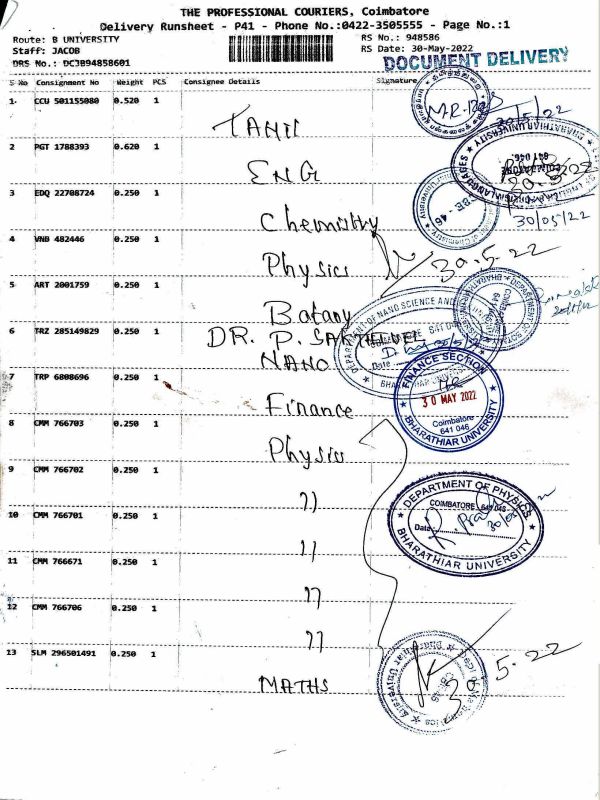 THE PROFESSIONAL COURIERS, Coimbatore
Delivery Runsheet - P41 - Phone No.:0422-3505555 - Page No.:1
Route: B UNIVERSITY
RS No.: 948586
Staff: JACOB
RS Date: 30-May-2022
DRS No.: DCJB94858601
DOCUMENT DELIVERY
S No Consignment No Weight PCS Consignee Details Signature
1 CCU 501155080 0.520 1
TAMIL
30/5/22
2 PGT 1788393 0.620 1
ENG
BHARATHIAR UNIVERSITY
641 046
3 EDQ 22708724 0.250 1
30/05/22
Chemistry
4 VNB 482446 0.250 1
Physics 30.5.22
5 ART 2001759 0.250 1
Botany
DEPARTMENT OF NANO SCIENCE AND
6 TRZ 285149829 0.250 1
DR. P. SAKTHIVEL
NANO
7 TRP 6808696 0.250 1
Finance
FINANCE SECTION
30 MAY 2022
Coimbatore
641 046
BHARATHIAR UNIVERSITY
8 CMM 766703 0.250 1
Physics
9 CMM 766702 0.250 1
"
DEPARTMENT OF PHYSICS
COIMBATORE 641 046
Date
BHARATHIAR UNIVERSITY
10 CMM 766701 0.250 1
"
11 CMM 766671 0.250 1
"
12 CMM 766706 0.250 1
"
13 SLM 296501491 0.250 1
MATHS
30.5.22